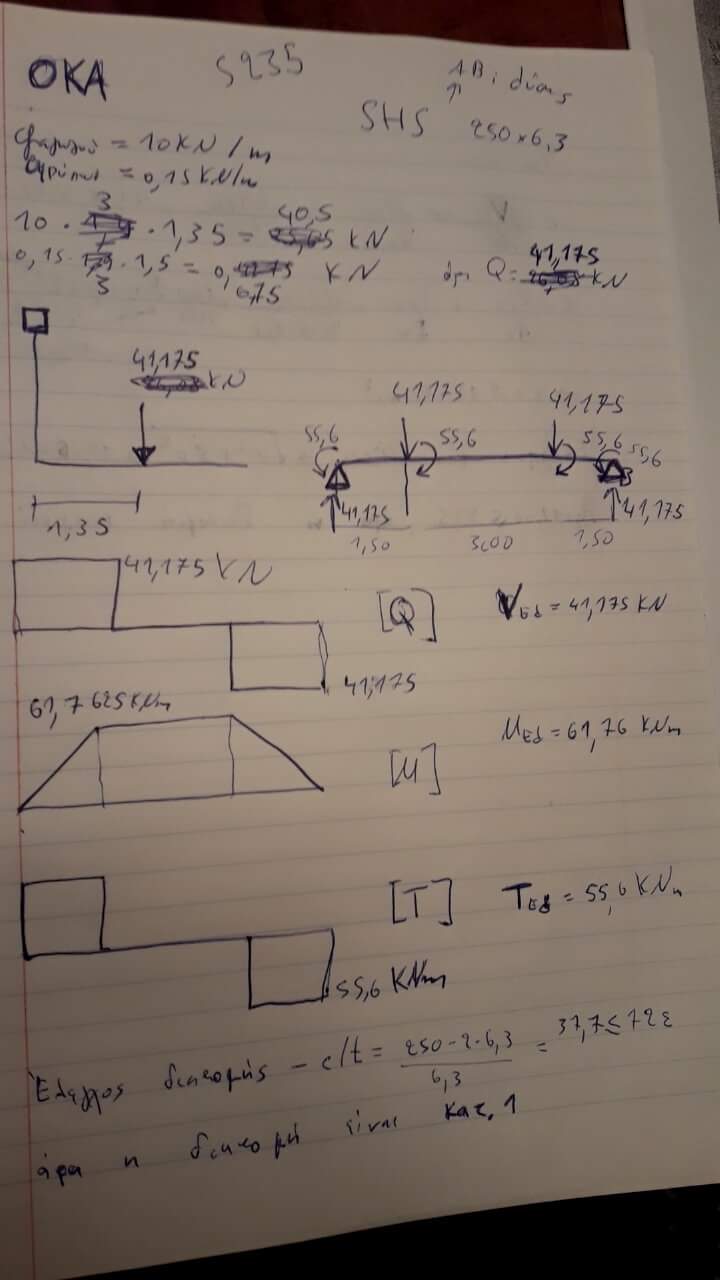 ΟΚΑ S235
SHS 250×6,3
= 10 KN/m
= 0,15 KN/m
10 · 3 · 1,35 = 40,5 KN
0,15 · 3 · 1,5 = 0,675 KN
Q = 41,175 KN
41,175 KN
1,35
41,175
41,175
55,6
55,6
55,6
55,6
41,175
41,175
1,50
3,00
1,50
41,175 KN
[Q]
VEd = 41,175 KN
41,175
61,7625 KNm
[M]
MEd = 61,76 KNm
[T]
TEd = 55,6 KNm
55,6 KNm
Έλεγχος διατομής - c/t = 250-2·6,3 / 6,3 = 37,7 ≤ 72ε
άρα η διατομή είναι κατ. 1